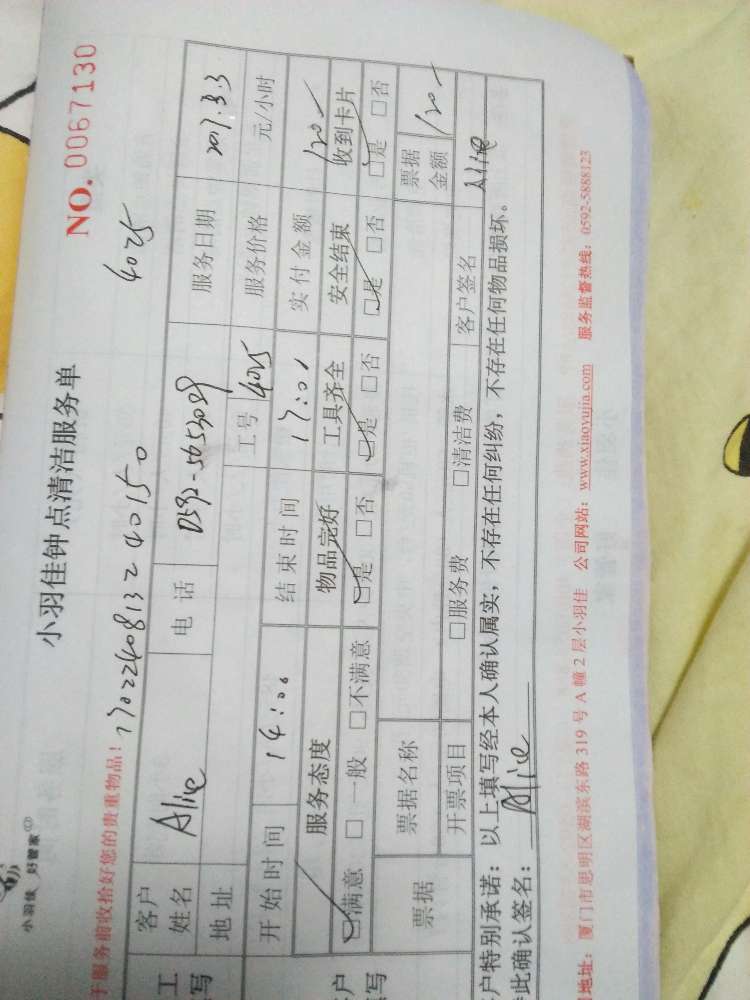 小羽佳 好管家
NO. 0067130
小羽佳钟点清洁服务单
4025
于服务前收拾好您的贵重物品! 170224081324 0150
客户姓名 Alie 电话 0592-5653029 服务日期 2017.3.3
地址 工号 4025 服务价格 元/小时
开始时间 14:00 结束时间 17:01 实付金额 120-
服务态度 物品完好 工具齐全 安全结束 收到卡片
□满意 □一般 □不满意 □是 □否 □是 □否 □是 □否 □是 □否
票据 票据名称 票据金额 120-
开票项目 □服务费 □清洁费 客户签名 Alie
户特别承诺: 以上填写经本人确认属实, 不存在任何纠纷, 不存在任何物品损坏。
此确认签名: Alie
地址: 厦门市思明区湖滨东路 319 号 A 幢 2 层小羽佳 公司网站: www.xiaoyujia.com 服务监督热线: 0592-5888123